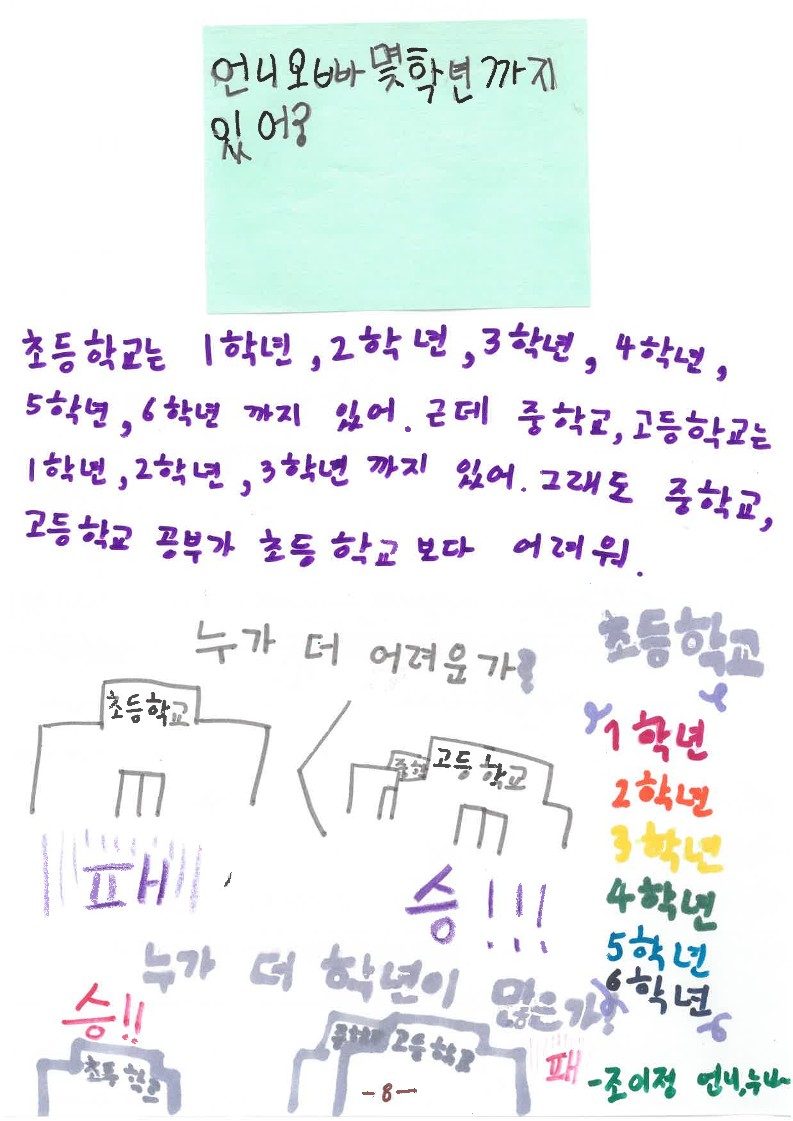 언니오빠 몇학년까지
있어?
초등학교는 1학년, 2학년, 3학년, 4학년,
5학년, 6학년 까지 있어. 근데 중학교, 고등학교는
1학년, 2학년, 3학년 까지 있어. 그래도 중학교,
고등학교 공부가 초등학교 보다 어려워.
누가 더 어려운가?
초등학교
중학
고등학교
패
승!!!
초등학교
1학년
2학년
3학년
4학년
5학년
6학년
누가 더 학년이 많은가?
승!!
초등학교
고등학교
패
-조이정 언니,누나-
-8-